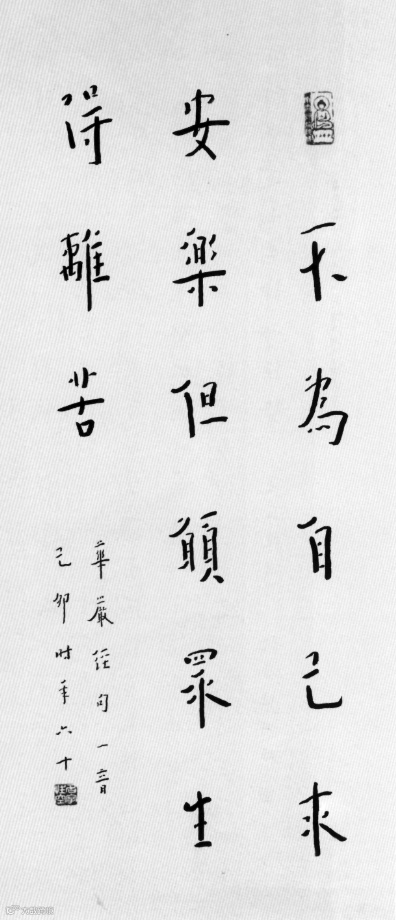 不為自己求
安樂但願眾生
得離苦
華嚴經句 一音
己卯時年六十